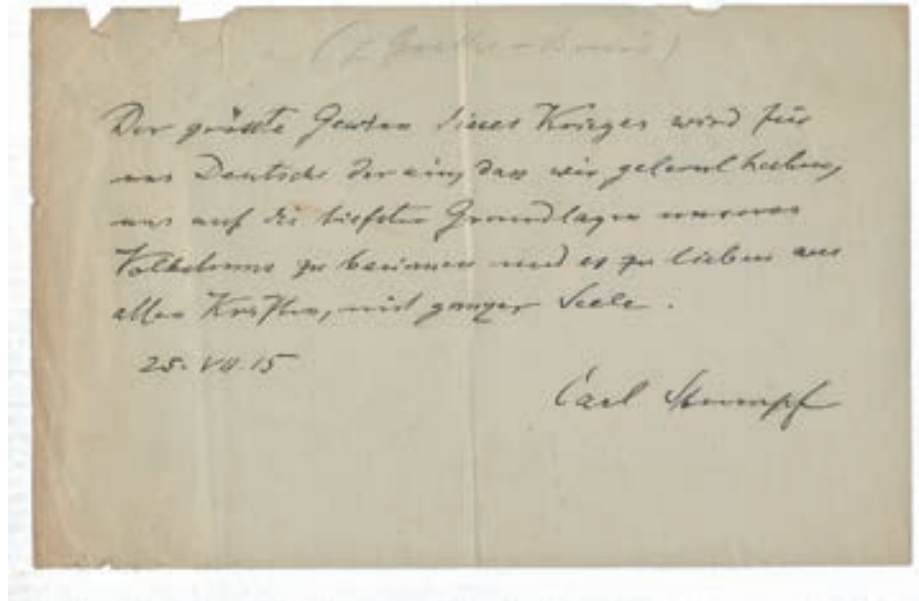 Der größte Gewinn dieses Krieges wird für
uns Deutsche der sein, dass wir gelernt haben,
uns auf die tiefsten Grundlagen unseres
Volkstums zu besinnen und es zu lieben aus
allen Kräften, mit ganzer Seele.
25. VII. 15
Carl Stumpf